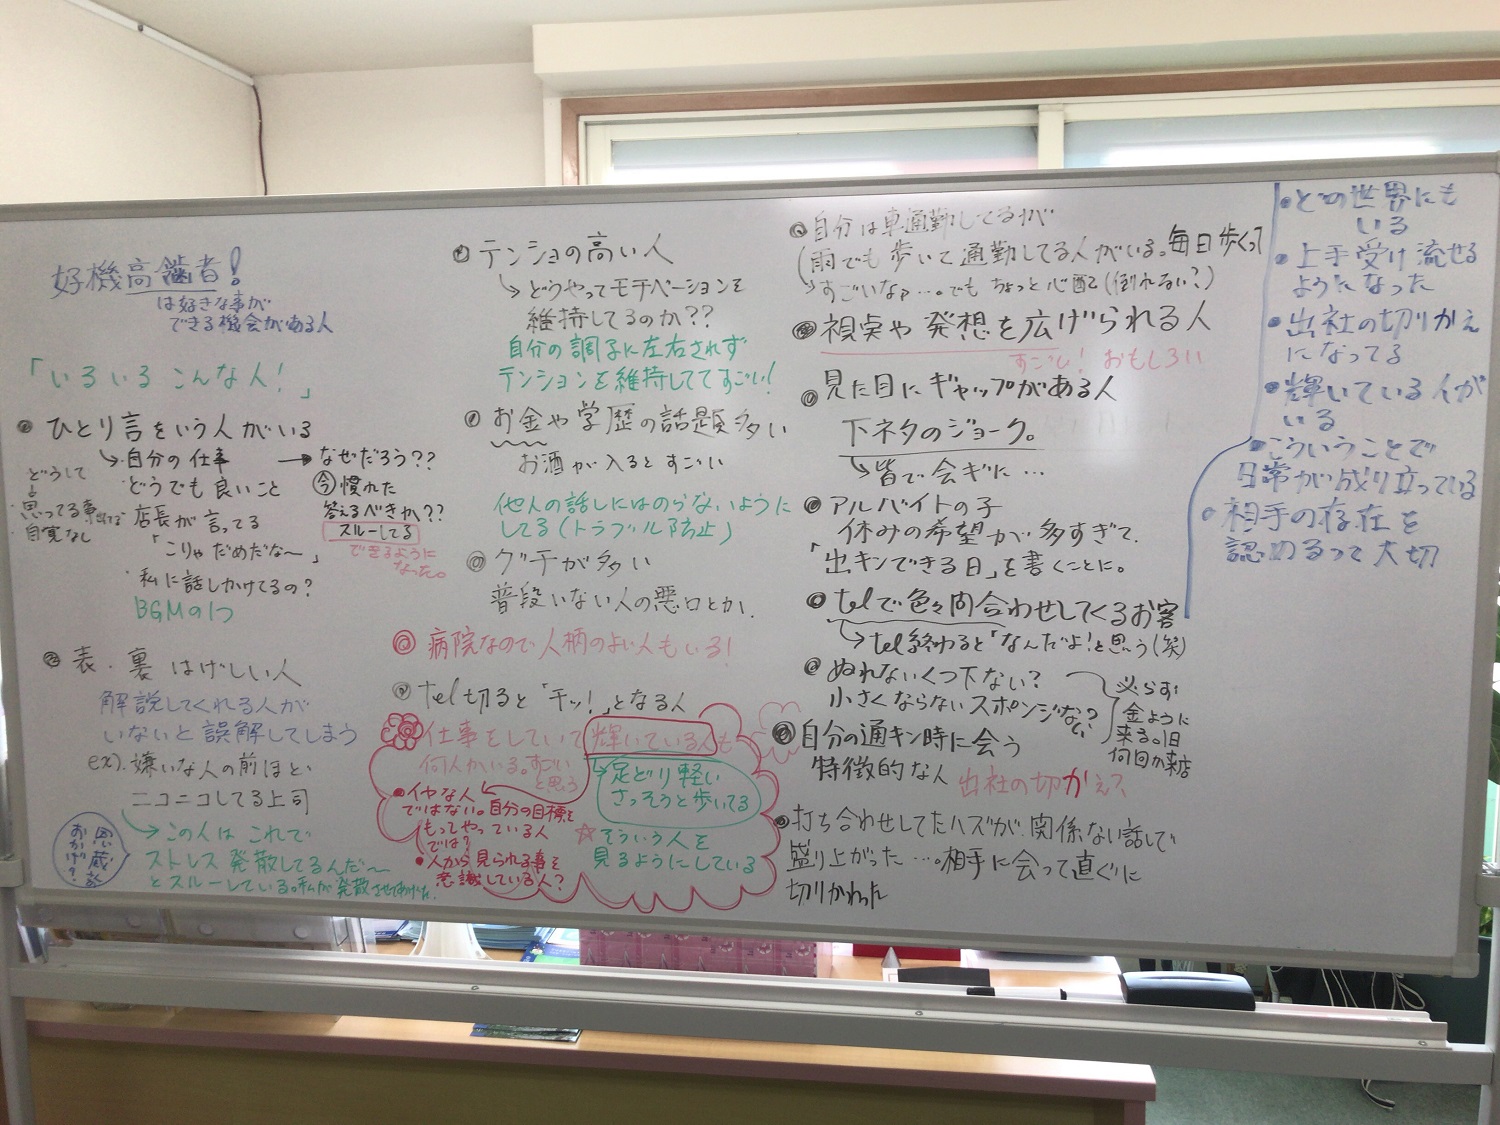 好機高齢者!
は好きな事が
できる機会がある人
「いるいる こんな人!」
ひとり言をいう人がいる
自分の仕事
どうでも良いこと
店長が言ってる
「こりゃだめだな〜」
私に話しかけてるの?
BGMの1つ
どうして
思ってる事
自覚なし
→なぜだろう??
今 慣れた
答えるべきか??
スルーしてる
できるように
なった。
表・裏 はげしい人
解説してくれる人が
いないと誤解してしまう
ex). 嫌いな人の前ほど、
ニコニコしてる上司
→この人は これで
ストレス発散してるんだ〜
とスルーしている。私が発散させてあげた。
おかげ?
テンションの高い人
どうやってモチベーションを
維持してるのか??
自分の調子に左右されず
テンションを維持しててすごい!
お金や学歴の話題多い
お酒が入るとすごい
他人の話しにはのらないように
してる(トラブル防止)
グチが多い
普段いない人の悪口とか、
病院なので人柄のよい人もいる!
tel切ると「チッ!」となる人
仕事をしていて輝いている人も
何人かいる。すごい
と思う
足どり軽い
さっそうと歩いてる
☆そういう人を
見るようにしている
・イヤな人
ではない。自分の目標を
もってやっている人
では?
・人から見られる事を
意識している人?
自分は車通勤してるが
(雨でも歩いて通勤してる人がいる。毎日歩くって
すごいなァ…。でもちょっと心配(倒れない?)
視点や発想を広げられる人
すごい! おもしろい
見た目にギャップがある人
下ネタのジョーク。
皆で会ギに…
アルバイトの子
休みの希望が多すぎて、
「出キンできる日」を書くことに。
telで色々問合わせしてくるお客
→tel終わると「なんだよ!と思う(笑)
ぬれないくつ下ない?
小さくならないスポンジない?
必らず
来る。1日
何回か来店
自分の通キン時に会う
特徴的な人 出社の切かえ?
打ち合わせしてたハズが、関係ない話しで
盛り上がった…。相手に会って直ぐに
切りかわった
・どの世界にも
いる
・上手受け流せる
ようになった
・出社の切りかえ
になってる
・輝いている人が
いる
・こういうことで
日常が成り立っている
相手の存在を
認めるって大切